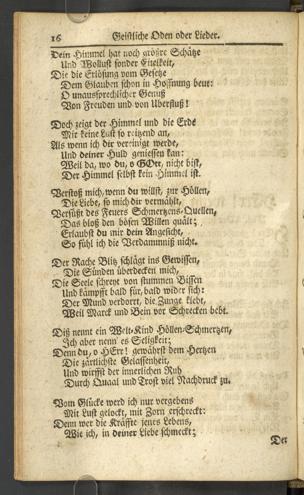 16 Geistliche Oden oder Lieder.
Dein Himmel hat noch größre Schätze
Und Wollust sonder Eitelkeit,
Die die Erlösung vom Gesetze
Dem Glauben schon in Hoffnung beut:
O unaussprechlicher Genuß
Von Freuden und von Uberfluß!
Doch zeigt der Himmel und die Erde
Mir keine Lust so reitzend an,
Als wenn ich dir vereinigt werde,
Und deiner Huld geniessen kan:
Weil da, wo du, o GOtt, nicht bist,
Der Himmel selbst kein Himmel ist.
Verstoß mich, wenn du willst, zur Höllen,
Die Liebe, so mich dir vermählt,
Versüßt des Feuers Schmertzens-Quellen,
Das bloß den bösen Willen quält;
Erlaubst du mir dein Angesicht,
So fühl ich die Verdammniß nicht.
Der Rache Blitz schlägt ins Gewissen,
Die Sünden überdecken mich,
Die Seele schreyt von stummen Bissen
Und kämpfft bald für, bald wider sich:
Der Mund verdorrt, die Zunge klebt,
Weil Marck und Bein vor Schrecken bebt.
Diß nennt ein Welt-Kind Höllen-Schmertzen,
Ich aber nenn' es Seligkeit;
Denn du, o HErr! gewährst dem Hertzen
Die zärtlichste Gelassenheit,
Und wirffst der innerlichen Ruh
Durch Quaal und Trost viel Nachdruck zu.
Vom Glücke werd ich nur vergebens
Mit Lust gelockt, mit Zorn erschreckt:
Denn wer die Kräffte jenes Lebens,
Wie ich, in deiner Liebe schmeckt;
Der